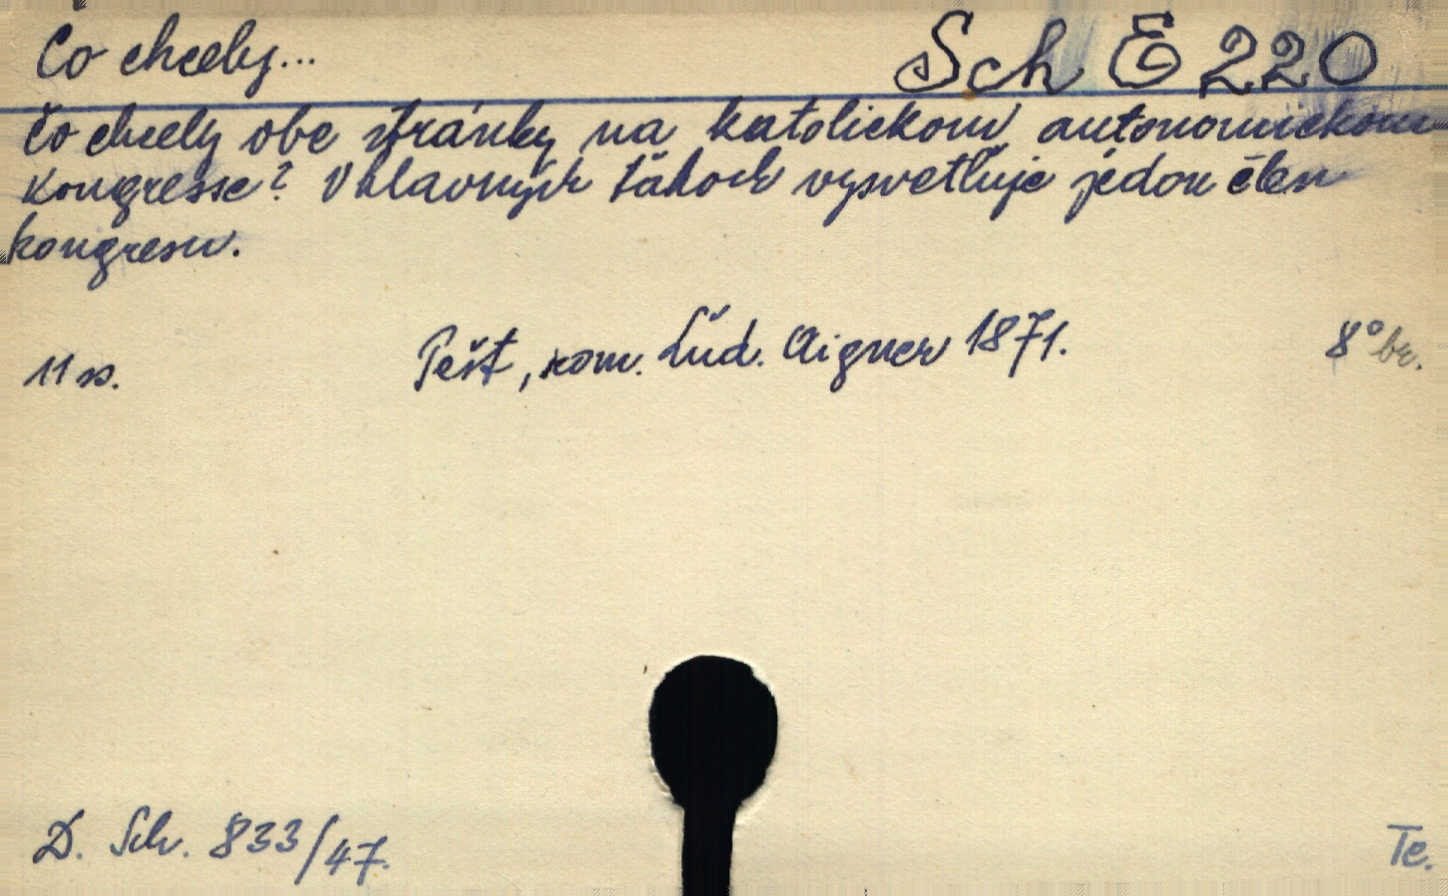 Čo chcely... Sch E 220
Čo chcely obe stránky na katolickom autonomickom
kongresse? V hlavných ťahoch vysvetľuje jedon člen
kongresu.
11 ss. Pešt, kom. Ľud. Aigner 1871. 8° br.
D. Sch. 833/47. Te.